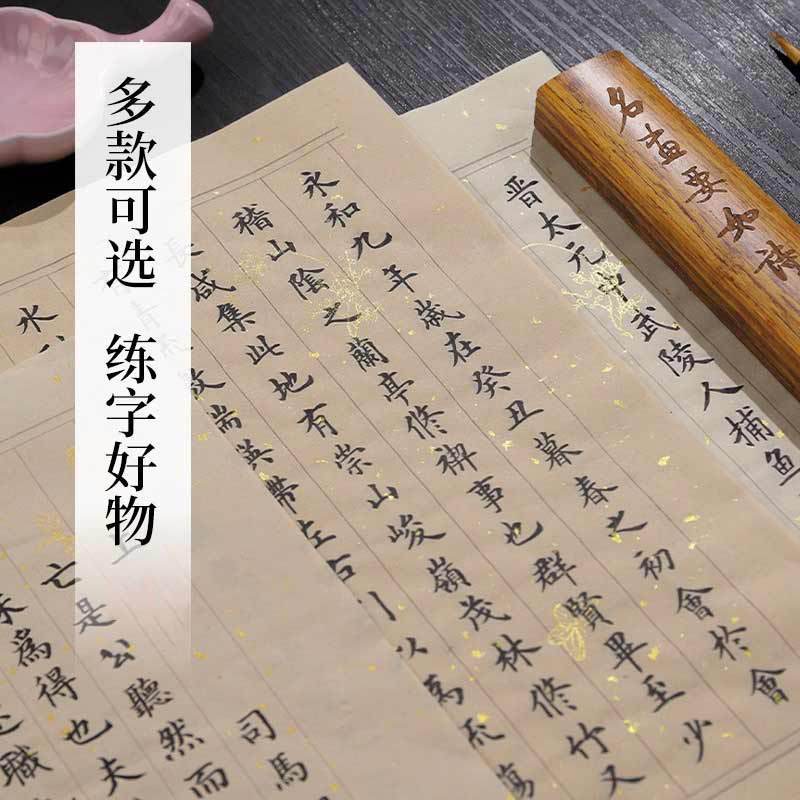 多款可选 练字好物
名畫要如
晉太元中武陵人捕魚
永和九年歲在癸丑暮春之初會於會
稽山陰之蘭亭修禊事也群賢畢至少
咸集此地有崇山峻嶺茂林修竹又
帶左右引以為流觴
水
司馬
亡是公聽然而
為得也夫
職